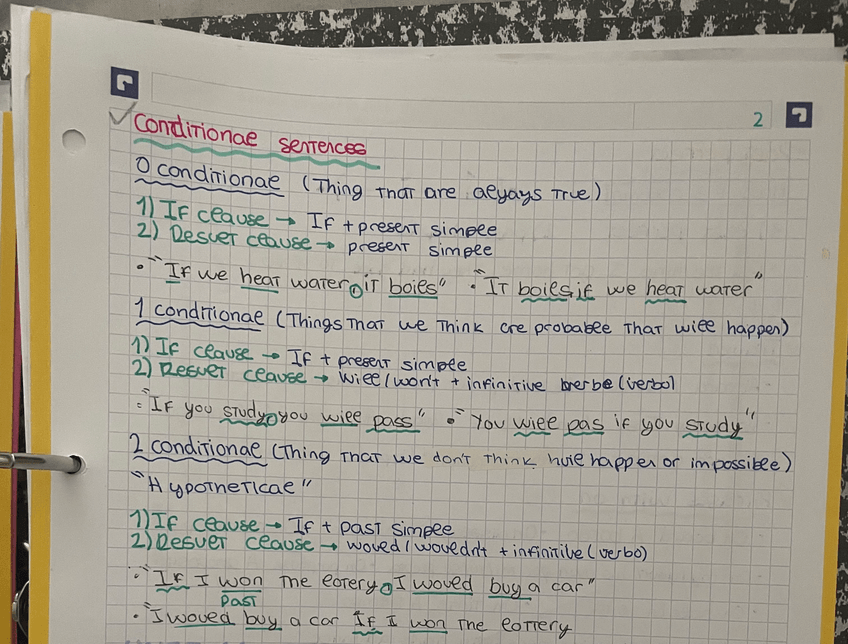 2
Conditional sentences
0 conditional (Thing that are alyays true)
1) If clause → If + present simple
2) Result clause → present simple
• "If we heat water, it boils" • "It boils if we heat water"
1 conditional (Things that we think are probable that will happen)
1) If clause → If + present simple
2) Result clause → will/won't + infinitive (verbo)
"If you study, you will pass" • "You will pas if you study"
2 conditional (Thing that we don't think happen or impossible)
"Hypothetical"
1) If clause → If + past simple
2) Result clause → would/wouldn't + infinitive (verbo)
"If I won the lotery, I would buy a car"
past
• "I would buy a car if I won the lottery